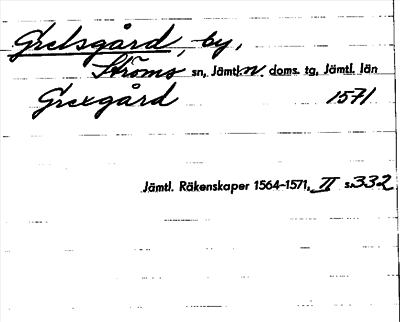 Grelsgård, by,
Ströms sn, Jämtl. n. doms. tg, Jämtl. län
Grexgård 1571
Jämtl. Räkenskaper 1564-1571, II s. 332